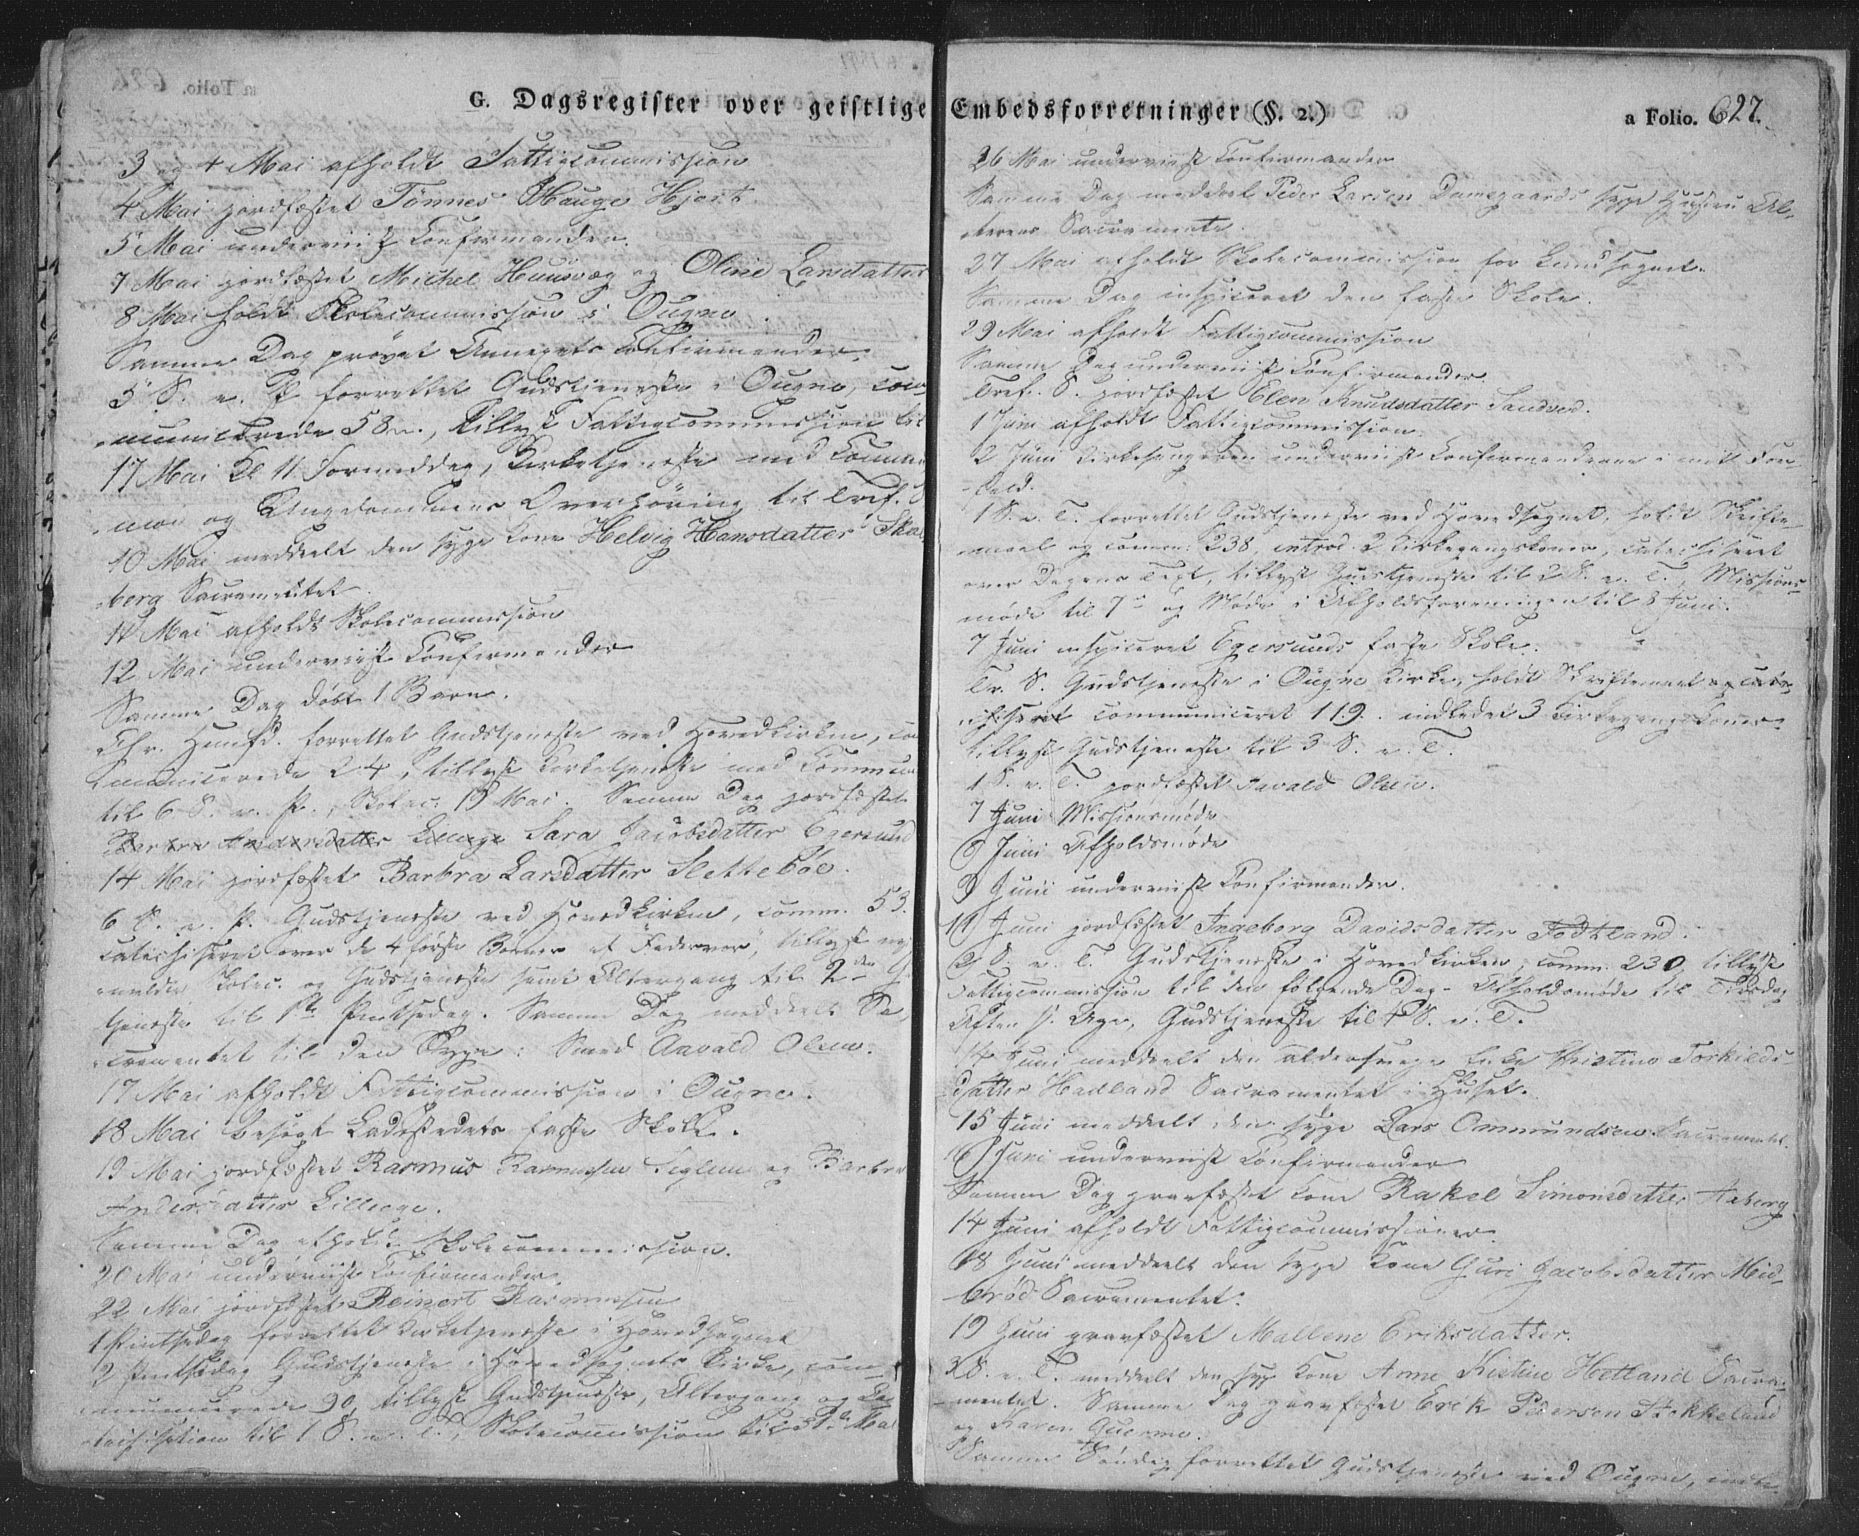 G. Dagsregister over geistlige Embedsforretninger (§. 2.)
a Folio. 627.
3 og 4 Mai afholdt Fattigcommission
4 Mai jordfæstet Tönnes Hauge Hjort.
5 Mai underviist Confirmander.
7 Mai jordfæstet Michel Huusvæg og Oline Larsdatter
8 Mai holdt Skolecommission i Ougne.
Samme Dag prøvet Annexets Confirmander.
5 S. e. P. forrettet Gudstjeneste i Ougne, com-
municerede 58, tillyst Fattigcommission til
17 Mai Kl 11 Formiddag, Kirketjeneste med Commu-
nion og Ungdommens Overhöring til Tref. S.
10 Mai meddeelt den syge Kone Helvig Hansdatter Skad-
berg Sacramentet.
11 Mai afholdt Skolecommission
12 Mai underviist Confirmander
Samme Dag døbt 1 Barn.
Chr. Himfd. forrettet Gudstjeneste ved Hovedkirken, co-
municerede 24, tillyst Kirketjeneste med Commun
til 6 S. e. P., Skolec. 19 Mai. Samme Dag jordfæstet
Sara Jacobsdatter Egersund
14 Mai jordfæstet Barbra Larsdatter Slettebøe.
6 S. e. P. Gudstjeneste ved Hovedkirken, comm. 53.
catechiseret over de 4 første Bönner af "Fadervor", tillyst
Skolec. og Gudstjeneste samt Altergang til 2den G
tjeneste til 1ste Pintsedag. Samme Dag meddeelt Sa-
cramentet til den Syge: Smed Aavald Olsen.
17 Mai afholdt Fattigcommission i Ougne.
18 Mai besøgt Ladestedets faste Skole.
19 Mai jordfæstet Rasmus Rasmussen Seglem og Barbra
Andersdatter Lilleoge.
Samme Dag afholdt Skolecommission.
20 Mai underviist Confirmander.
22 Mai jordfæstet Reinert Rasmussen
1 Pintsedag forrettet Kirketjeneste i Hovedsognet
2 Pintsedag Gudstjeneste i Hovedsognets Kirke, com-
municerede 90, tillyst Gudstjeneste, Altergang og Ca-
techisation til 1 S. e. T., Skolecommission til Mai
26 Mai underviist Confirmander
Samme Dag meddeelt Peder Larsen Damsgaards syge Hustru Al-
terens Sacramente.
27 Mai afholdt Skolecommission for Landsognet.
Samme Dag inspiceret den faste Skole.
29 Mai afholdt Fattigcommission
Samme Dag underviist Confirmander
Tref. S. jordfæstet Elen Knudsdatter Sandved.
1 Juni afholdt Fattigcommission.
2 Juni Kirkesangeren underviist Confirmanderne i mit For-
fald.
1 S. e. T. forrettet Gudstjeneste ved Hovedsognet, holdt Skrifte-
maal og comm: 238, introd. 2 Kirkegangskoner, catechiseret
over Dagens Text, tillyst Gudstjeneste til 2 S. e. T., Missions-
møde til 7de og Møde i Afholdsforeningen til 8 Juni.
7 Juni inspiceret Egersunds faste Skole.
Tr. S. Gudstjeneste i Ougne Kirke, holdt Skriftemaal og cate-
chiseret communiceret 119. indledet 3 Kirkegangskoner.
tillyst Gudstjeneste til 3 S. e. T.
1 S. e. T. jordfæstet Aavald Olsen.
7 Juni Missionsmøde
8 Juni Afholdsmøde
9 Juni underviist Confirmander.
11 Juni jordfæstet Ingeborg Davidsdatter Fodtland.
2 S. e. T. Gudstjeneste i Hovedkirken, comm. 230, tillyst
Fattigcommission til den følgende Dag - Afholdsmøde til Tirsdag
Aften s. Uge, Gudstjeneste til 4 S. e. T.
14 Juni meddeelt den aldersvage Enke Kristine Torkilds-
datter Hadland Sacramentet i Huset.
15 Juni meddeelt den syge Lars Ommundsen Sacramentet
16 Juni underviist Confirmander
Samme Dag gravfæstet Kone Rakel Simonsdatter Aaberg
14 Juni afholdt Fattigcommissioner.
18 Juni meddeelt den syge Kone Guri Jacobsdatter Mid-
brød Sacramentet.
19 Juni gravfæstet Mallene Eriksdatter.
3 S. e. T. meddeelt den syge Kone Anne Kistine Hetland Sacra-
mentet. Samme Dag gravfæstet Erik Pedersen Stokkeland
og Karen Guerme.
Samme Søndag forrettet Gudstjeneste ved Ougne,